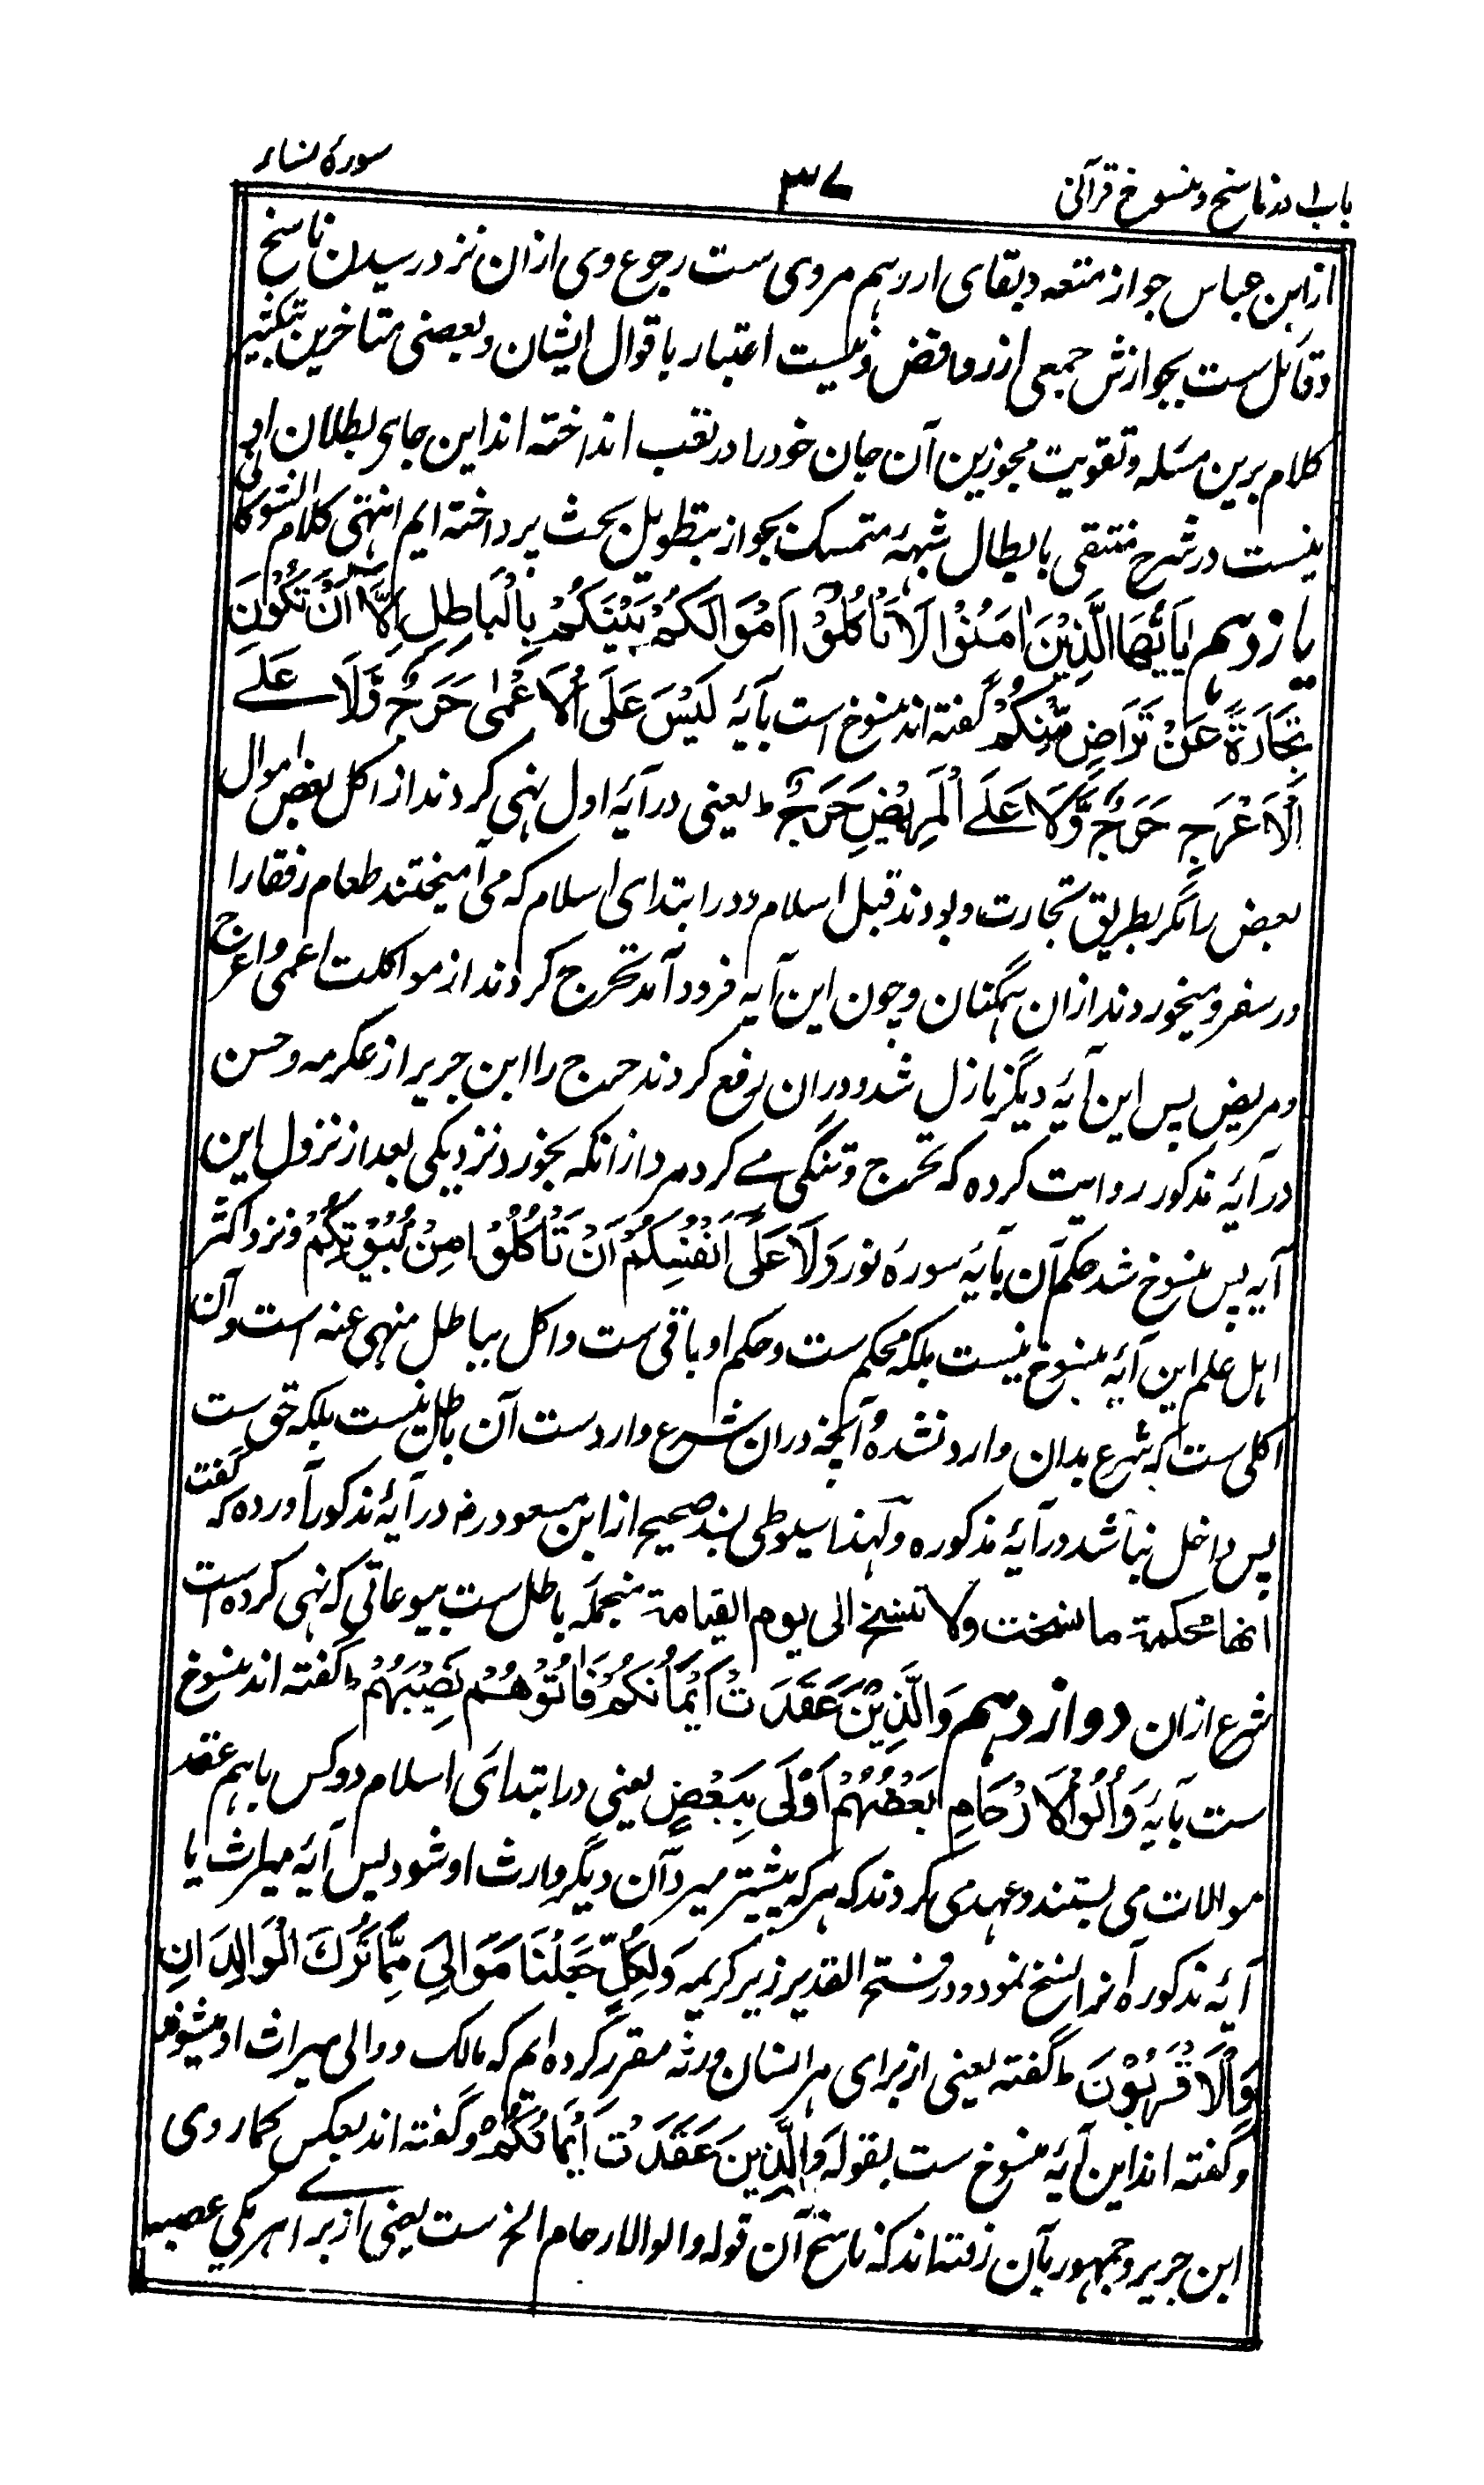 باب اول در ناسخ و منسوخ قرآنی
۳۷
سورۂ نساء
از ابن عباس جواز متعه و بقای او رهم مروی ست رجوع وی ازان نزد رسیدن ناسخ
و قائل ست بجوازش جمعی از روافض و نیست اعتبار باقوال ایشان و بعضی متاخرین بتکثیر
کلام برین مسئله و تقویت مجوزین آن جان خود را در تعب انداخته اند این جای بطلان او
نیست در شرح منتقی بابطال شبهۀ متمسک بجواز بتطویل بحث پرداخته ایم انتهی کلام الشوکانی
یازدهم یٰٓاَیُّهَا الَّذِیْنَ اٰمَنُوْا لَا تَاْكُلُوْٓا اَمْوَالَكُمْ بَیْنَكُمْ بِالْبَاطِلِ اِلَّآ اَنْ تَكُوْنَ
تِجَارَةً عَنْ تَرَاضٍ مِّنْكُمْ گفته اند منسوخ است بآیۀ لَیْسَ عَلَی الْاَعْمٰی حَرَجٌ وَّلَا عَلَے
الْاَعْرَجِ حَرَجٌ وَّلَا عَلَے الْمَرِیْضِ حَرَجٌ ط یعنی در آیۀ اول نهی کردند از اکل بعض اموال
بعض را مگر بطریق تجارت و بودند قبل اسلام و در ابتدای اسلام که می آمیختند طعام رفقا را
در سفر و میخوردند ازان همگنان و چون این آیه فرود آمد تحرج کردند از مواکلت اعمی و اعرج
و مریض پس این آیۀ دیگر نازل شد و دران رفع کردند حرج را ابن جریر از عکرمه و حسن
در آیۀ مذکور روایت کرده که تحرج و تنگی مے کرد مرد ازانکه بخورد نزدیکی بعد از نزول این
آیه پس منسوخ شد حکم آن بآیه سورۀ نور وَلَا عَلٰٓی اَنْفُسِكُمْ اَنْ تَاْكُلُوْا مِنْ بُیُوْتِكُمْ و نزد اکثر
اهل علم این آیه منسوخ نیست بلکه محکم ست و حکم او باقی ست و اکل بباطل منهی عنه است و آن
اکلی ست که شرع بدان وارد نشده و آنچه دران شرع وارد ست آن باطل نیست بلکه حق ست
پس داخل نباشد در آیۀ مذکوره و لهذا سیوطی بسند صحیح از ابن مسعود رض در آیۀ مذکور آورده که گفت
انها محکمة ما نسخت ولا تنسخ الی یوم القیامة منجمله باطل ست بیوعاتی که نهی کرده است
شرع ازان دوازدهم وَالَّذِیْنَ عَقَدَتْ اَیْمَانُكُمْ فَاٰتُوْهُمْ نَصِیْبَهُمْ ط گفته اند منسوخ
ست بآیۀ وَاُلُوا الْاَرْحَامِ بَعْضُهُمْ اَوْلٰی بِبَعْضٍ یعنی در ابتدای اسلام دو کس باهم عقد
موالات می بستند و عهدی میکردند که هر که پیشتر میرد آن دیگر وارث او شود پس آیۀ میراث یا
آیۀ مذکور آنرا نسخ نمود و در فتح القدیر زیر کریمه وَلِكُلٍّ جَعَلْنَا مَوَالِیَ مِمَّا تَرَكَ الْوَالِدَانِ
وَالْاَقْرَبُوْنَ ط گفته یعنی از برای هر انسان ورثه مقرر کرده ایم که مالک و والی میراث او میشوند
و گفته اند این آیه منسوخ ست بقوله وَالَّذِیْنَ عَقَدَتْ اَیْمَانُكُمْ و گفته اند بعکس کما روی
ابن جریر و جمهور بآن رفته اند که ناسخ آن قوله و اولوا الارحام الخ ست یعنی از برای هر یکی عصبه